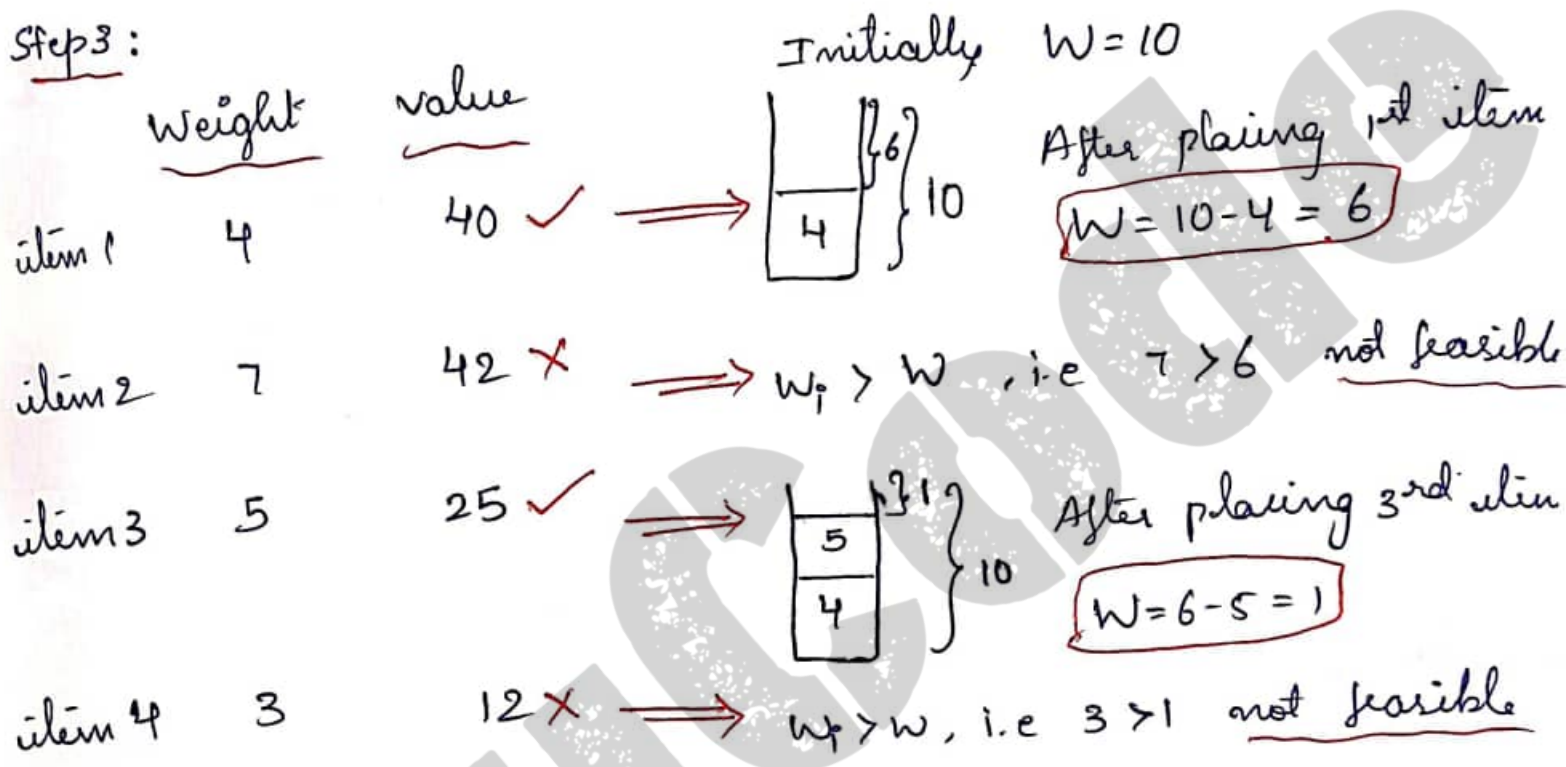 Step3:
Initially W = 10
Weight value
After placing 1st item
item 1 4 40 ✓ ⇒ 4 }6 } 10 W = 10-4 = 6
item 2 7 42 ✗ ⇒ wi > W, i.e 7 > 6 not feasible
item 3 5 25 ✓ ⇒ 5 4 }1 } 10 After placing 3rd item
W = 6-5 = 1
item 4 3 12 ✗ ⇒ wi > w, i.e 3 > 1 not feasible